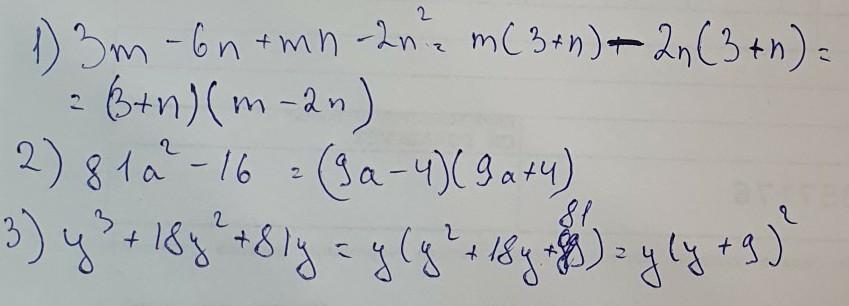 1) 3m - 6n + mn - 2n² = m(3+n) - 2n(3+n) =
= (3+n)(m - 2n)
2) 81a² - 16 = (9a - 4)(9a + 4)
3) y³ + 18y² + 81y = y(y² + 18y + 81) = y(y + 9)²